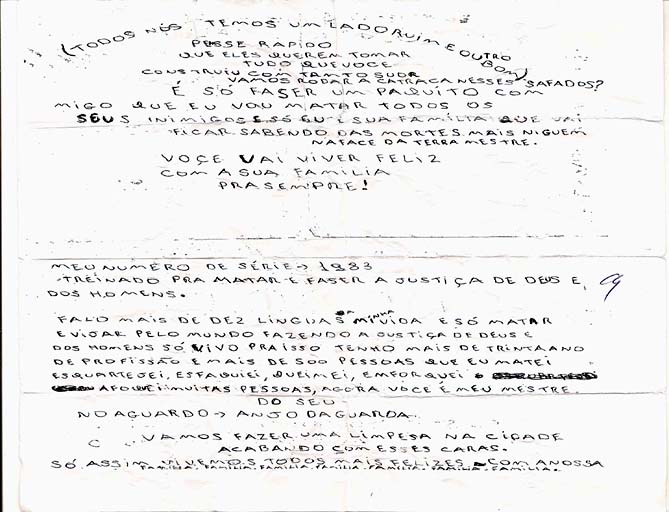 (TODOS NÓS TEMOS UM LADO RUIM E OUTRO BOM)
PESSE RAPIDO
QUE ELES QUEREM TOMAR
TUDO QUE VOCE
CONSTRUIU COM TAMTO SUOR
VAMOS RODAR A CATRACA NESSES SAFADOS?
É SÓ FASER UM PAQUITO COM
MIGO QUE EU VOU MATAR TODOS OS
SEUS INIMIGOS E SÓ EU E SUA FAMILIA QUE VAI
FICAR SABENDO DAS MORTES MAIS NIGUEM
NA FACE DA TERRA MESTRE.
VOÇE VAI VIVER FELIZ
COM A SUA FAMILIA
PRA SEMPRE!
MEU NUMERO DE SÉRIE → 1983
TREINADO PRA MATAR E FASER A JUSTIÇA DE DEUS E
DOS HOMENS.
FALO MAIS DE DEZ LINGUAS DA MINHA VIDA E SÓ MATAR
E VIJAR PELO MUNDO FAZENDO A JUSTIÇA DE DEUS E
DOS HOMENS SÓ VIVO PRA ISSO TENHO MAIS DE TRINTA ANO
DE PROFISSÃO E MAIS DE 500 PESSOAS QUE EU MATEI
ESQUARTEJEI, ESFAQUIEI, QUEIMEI, EMFORQUEI
AFOQUEI MUITAS PESSOAS, AGORA VOCE É MEU MESTRE.
DO SEU
NO AGUARDO → ANJO DA GUARDA
VAMOS FAZER UMA LIMPESA NA CIDADE
ACABANDO COM ESSES CARAS.
SÓ ASSIM VIVEMOS TODOS MAIS FELIZES COM A NOSSA
FAMILIA. FAMILIA. FAMILIA. FAMILIA. FAMILIA. FAMILIA. FAMILIA.